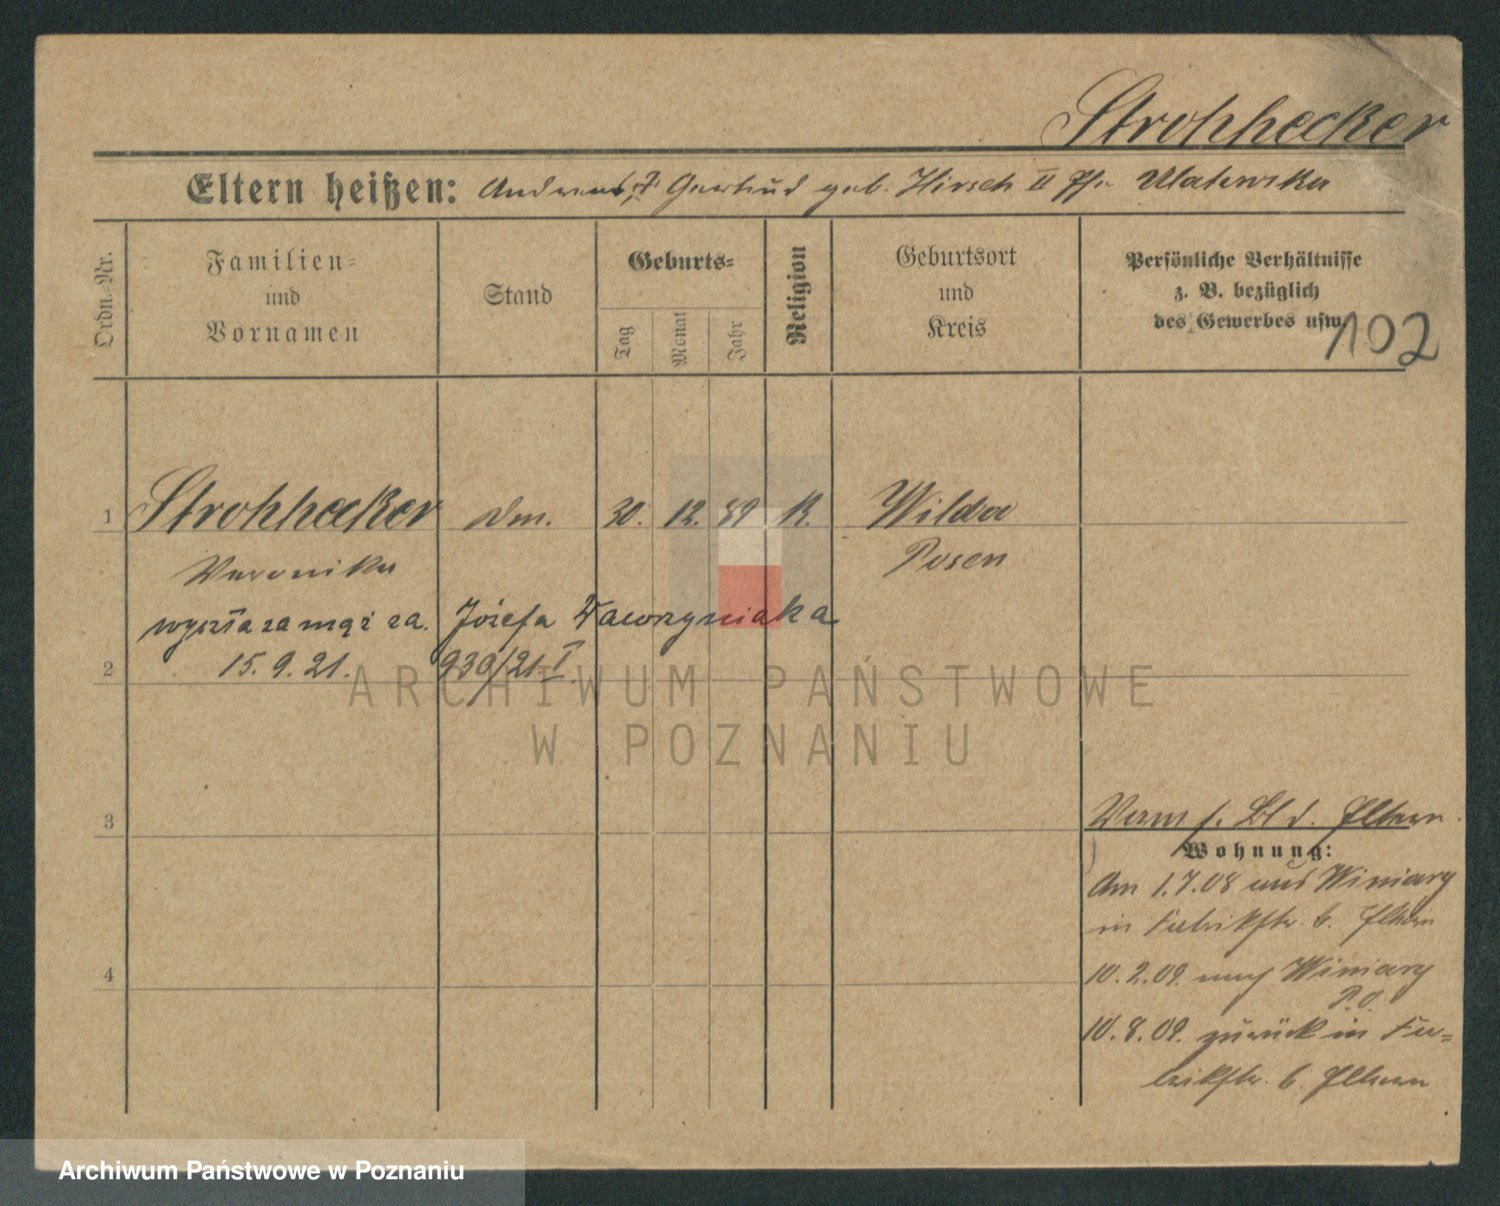 Strohhecker
Eltern heißen: Andreas, Gertrud geb. Hirsch II Ulatowska
Ordn.-Nr.
Familien-
und
Vornamen
Stand
Geburts-
Tag
Monat
Jahr
Religion
Geburtsort
und
Kreis
Persönliche Verhältnisse
z. B. bezüglich
des Gewerbes usw.
102
1 Strohhecker 30. 12. 89 k. Wilda
Veronika Posen
wyszła za mąż za Józefa Wawrzyniaka
2 15. 9. 21. 930/21 I
3
Verm f. Bl d. Eltern.
Wohnung:
Am 1.7.08 aus Winiary
in Fabrikstr. b. Eltern
4 10.2.09. nach Winiary
P.O.
10.8.09. zurück in Fa-
brikstr. b. Eltern
ARCHIWUM PAŃSTWOWE
W POZNANIU
Archiwum Państwowe w Poznaniu